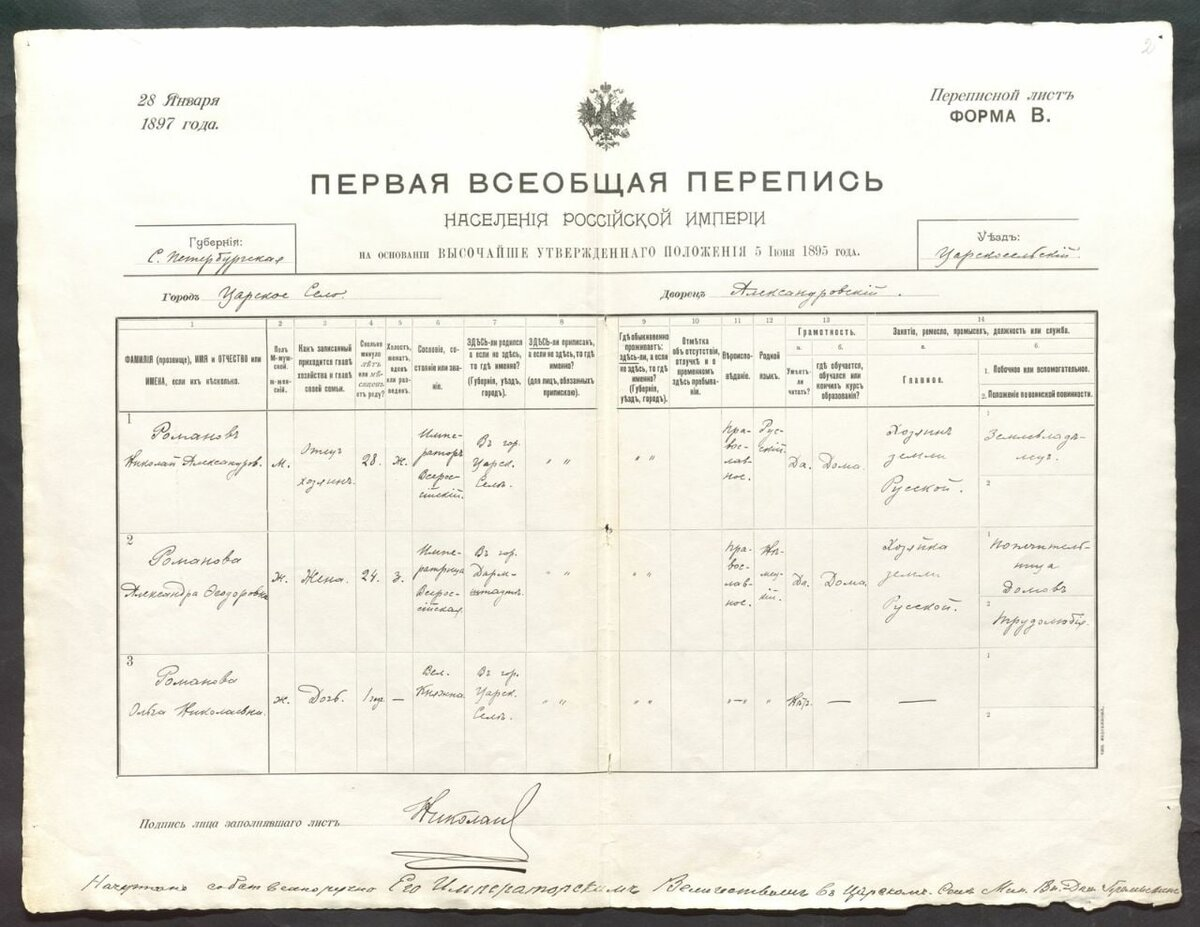 2
28 Января
1897 года.
Переписной листъ
ФОРМА В.
ПЕРВАЯ ВСЕОБЩАЯ ПЕРЕПИСЬ
НАСЕЛЕНІЯ РОССІЙСКОЙ ИМПЕРІИ
НА ОСНОВАНІИ ВЫСОЧАЙШЕ УТВЕРЖДЕННАГО ПОЛОЖЕНІЯ 5 Іюня 1895 года.
Губернія:
С. Петербургская
Уѣздъ:
Царскосельскій.
Городъ Царское Село.
Дворецъ Александровскій.
1
2
3
4
5
6
7
8
9
10
11
12
13
14
ФАМИЛІЯ (прозвище), ИМЯ и ОТЧЕСТВО или
ИМЕНА, если ихъ нѣсколько.
Полъ
М-мужской.
ж-женскій.
Какъ записанный
приходится главѣ
хозяйства и главѣ
своей семьи.
Сколько
минуло
лѣтъ
или мѣ-
сяцевъ
отъ роду?
Холостъ,
женатъ,
вдовъ
или раз-
веденъ.
Сословіе, со-
стояніе или зва-
ніе.
ЗДѢСЬ-ли родился
а если не здѣсь,
то гдѣ именно?
(Губернія, уѣздъ,
городъ).
ЗДѢСЬ-ли приписанъ,
а если не здѣсь, то гдѣ
именно?
(для лицъ, обязанныхъ
припискою).
Гдѣ обыкновенно
проживаетъ:
здѣсь-ли, а если
не здѣсь, то гдѣ
именно?
(Губернія,
уѣздъ, городъ).
Отмѣтка
объ отсутствіи,
отлучкѣ и о
временномъ
здѣсь пребыва-
ніи.
Вѣроиспо-
вѣданіе.
Родной
языкъ.
Грамотность.
а.
Умѣетъ-
ли
читать?
б.
гдѣ обучается,
обучался или
кончилъ курсъ
образованія?
Занятіе, ремесло, промыселъ, должность или служба.
а.
Главное.
б.
1. Побочное или вспомогательное.
2. Положеніе по воинской повинности.
1
Романовъ
Николай Александров.
м.
хозяинъ.
28.
ж.
Импе-
раторъ
Всерос-
сійскій.
Въ гор.
Царск.
Селѣ.
" "
" "
Пра-
вос-
лав-
ное.
Рус-
скій.
Да.
Дома.
Хозяинъ
земли
Русской.
1
Землевладѣ-
лецъ.
2
2
Романова
Александра Ѳеодоровна
ж.
Жена.
24.
з.
Импе-
ратрица
Всерос-
сійская
Въ гор.
Дарм-
штадтѣ.
" "
" "
Пра-
вос-
лав-
ное.
Нѣ-
мец-
кій.
Да.
Дома.
Хозяйка
земли
Русской.
1
Попечитель-
ница
Домовъ
2
Трудолюбія.
3
Романова
Ольга Николаевна.
ж.
Дочь.
1 год.
—
Вел.
Княжна.
Въ гор.
Царск.
Селѣ.
" "
" "
"—"
"
Нѣтъ.
—
—
1
2
Подпись лица заполнявшаго листъ
Николай
Начертано собственноручно Его Императорскимъ Величествомъ въ Царскомъ Селѣ Мин. Вн. Дѣл.